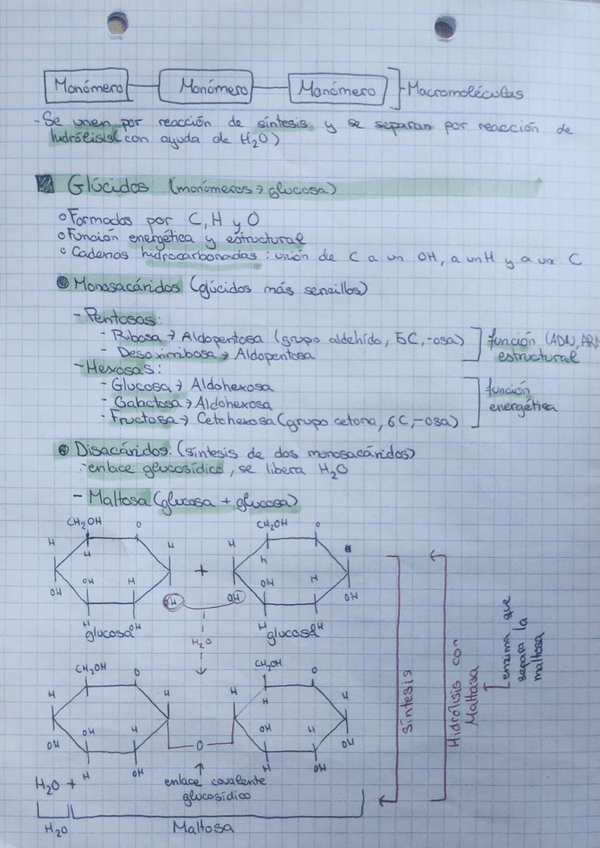 Monómero Monómero Monómero Macromoléculas
- Se unen por reacción de síntesis y se separan por reacción de
hidrólisis (con ayuda de H₂O)
Glúcidos (monómeros → glucosa)
Formados por C, H y O
Función energética y estructural
Cadenas hidrocarbonadas: unión de C a un OH, a un H y a un C
Monosacáridos (glúcidos más sencillos)
- Pentosas:
- Ribosa → Aldopentosa (grupo aldehído, 5C, -osa)
- Desoxirribosa → Aldopentosa
función (ADN, ARN
estructural
- Hexosas:
- Glucosa → Aldohexosa
- Galactosa → Aldohexosa
- Fructosa → Cetohexosa (grupo cetona, 6C, -osa)
función
energética
Disacáridos: (síntesis de dos monosacáridos)
- enlace glucosídico, se libera H₂O
- Maltosa (glucosa + glucosa)
CH₂OH O CH₂OH O
H H H H
H H
OH H + OH H
OH OH OH OH
H OH H OH
glucosa glucosa
H₂O
CH₂OH O CH₂OH O
H H H H
H H
OH H OH H
OH O OH
H OH H OH
enlace covalente
glucosídico
H₂O +
H₂O Maltosa
síntesis
Hidrólisis con
Maltasa
enzima que
separa la
maltosa